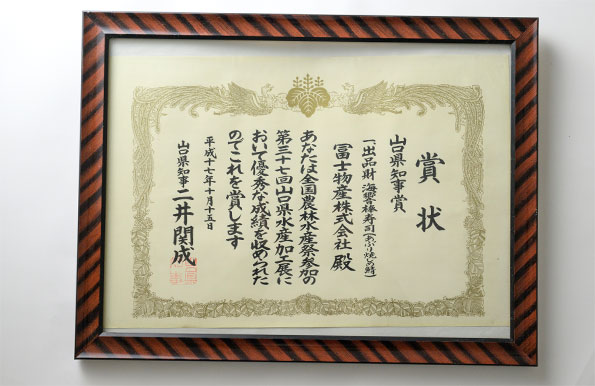 賞状
山口県知事賞
一、出品財 海響棒寿司(あぶり焼しめ鯖)
冨士物産株式会社 殿
あなたは全国農林水産祭参加の
第三十七回山口県水産加工展に
おいて優秀な成績を収められた
のでこれを賞します
平成十七年十月十五日
山口県知事 二井関成